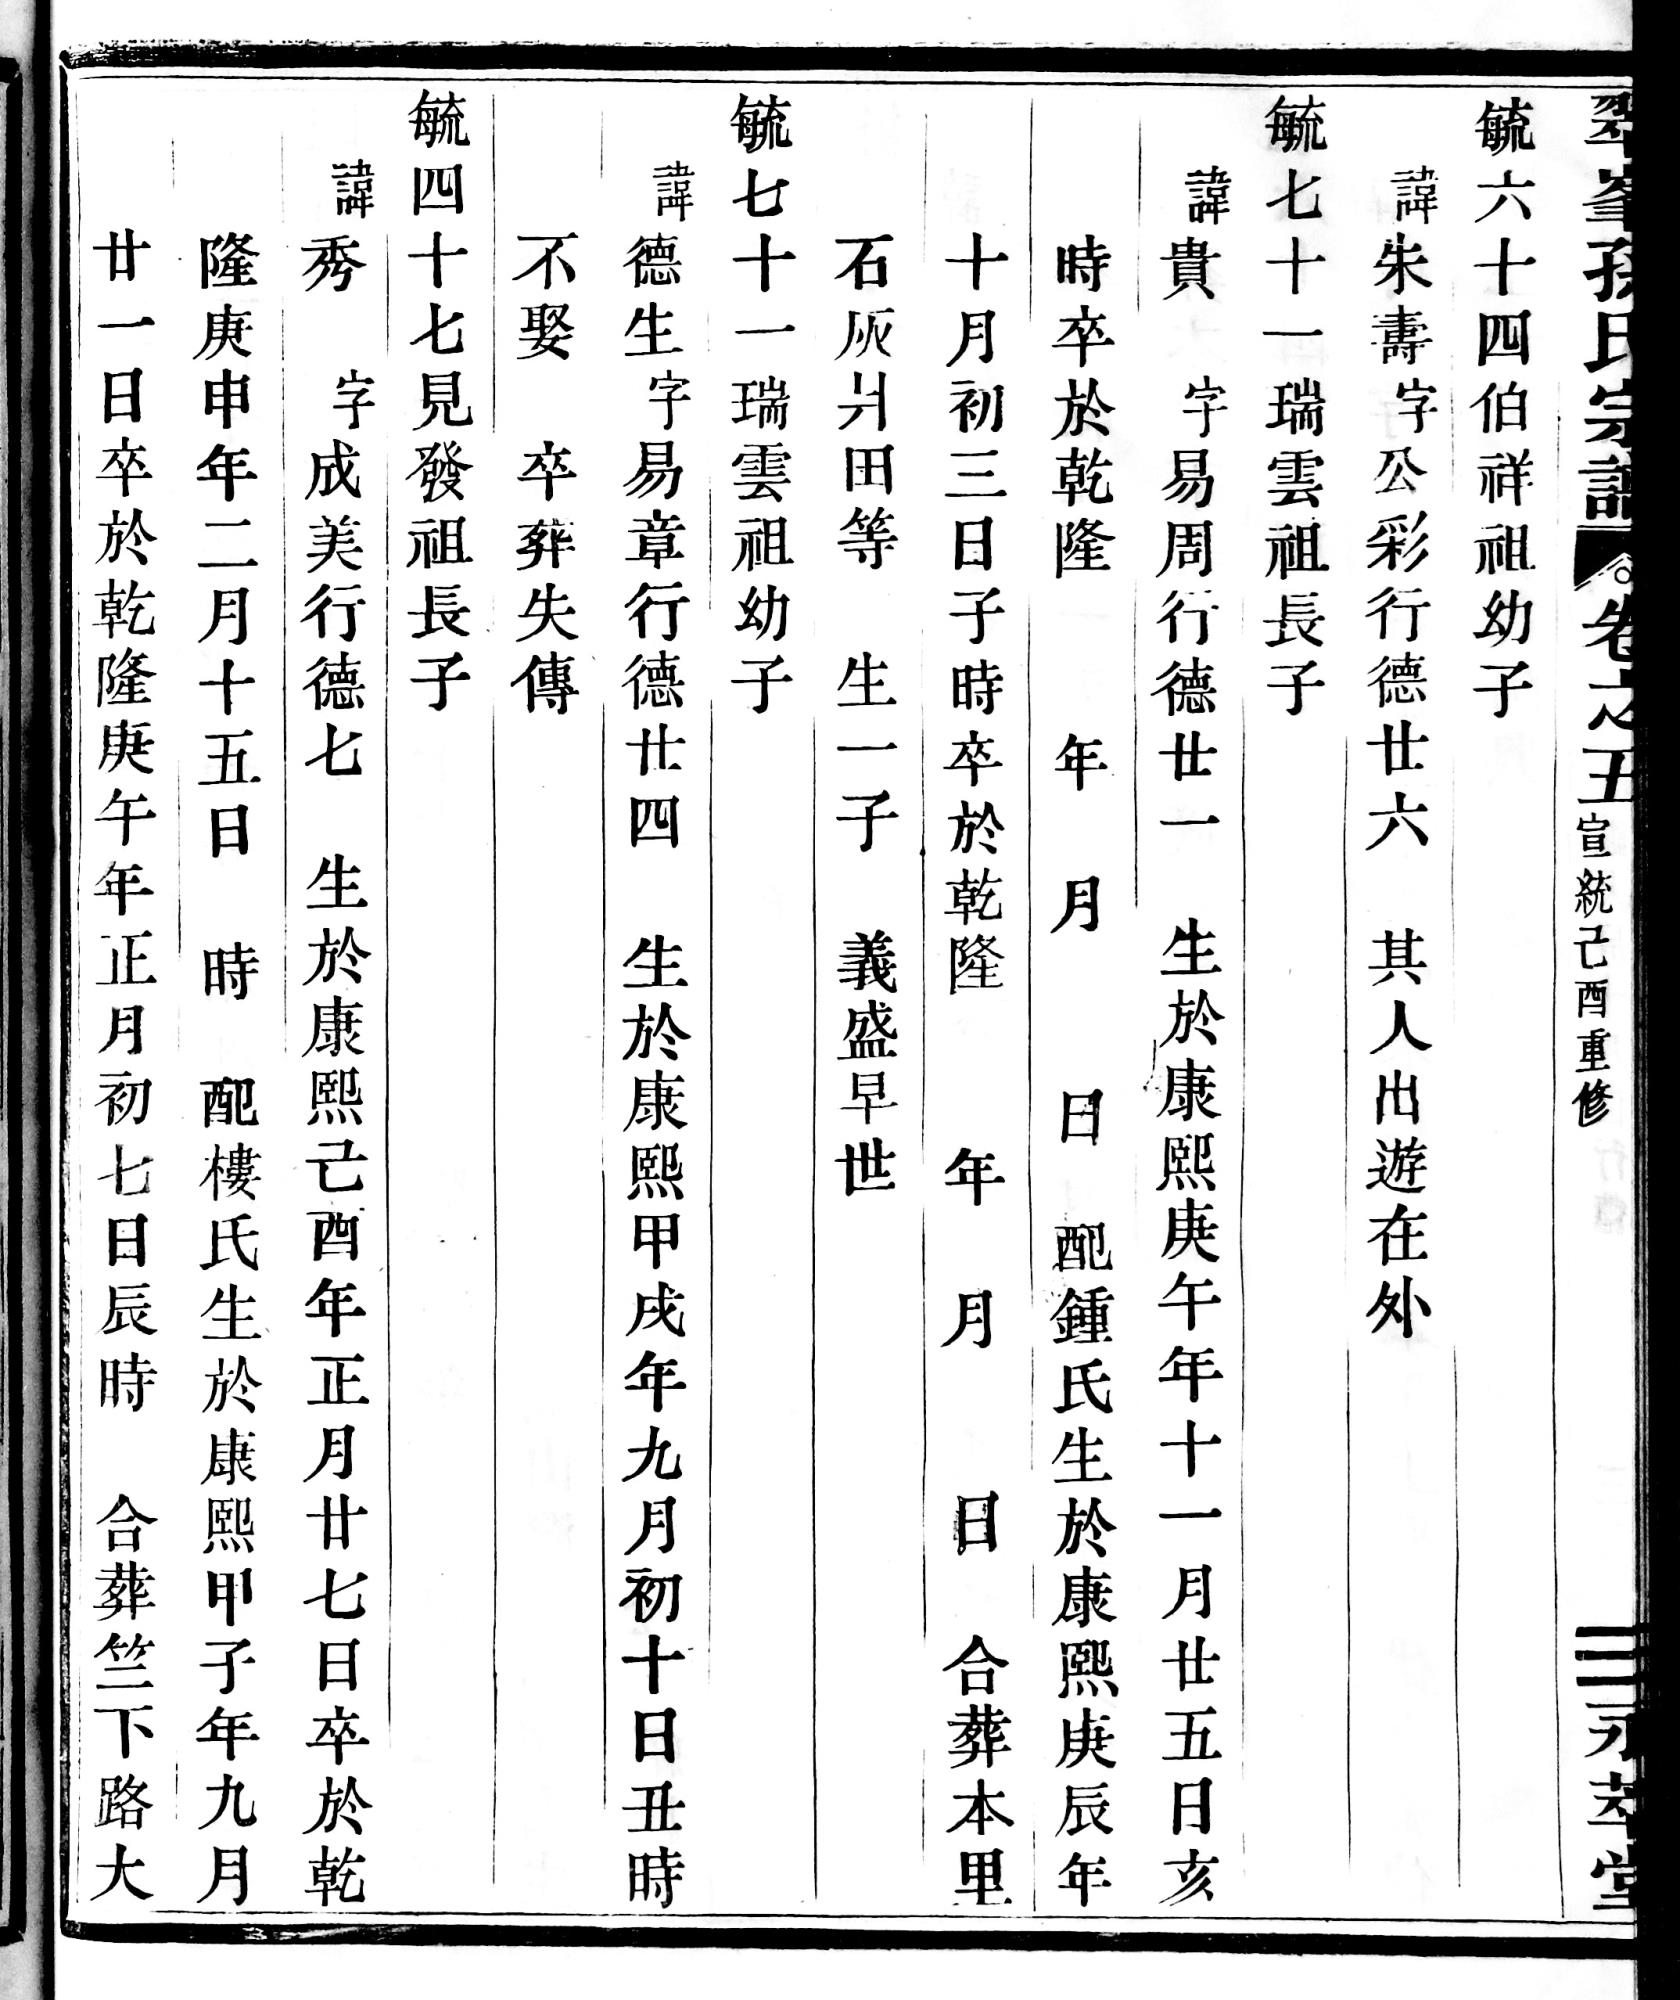 翠峯孫氏宗譜 卷之五 宣統己酉重修 三 永萃堂
毓六十四伯祥祖幼子
諱朱壽字公彩行德廿六 其人出遊在外
毓七十一瑞雲祖長子
諱貴 字易周行德廿一 生於康熙庚午年十一月廿五日亥
時卒於乾隆 年 月 日 配鍾氏生於康熙庚辰年
十月初三日子時卒於乾隆 年 月 日 合葬本里
石灰爿田等 生一子 義盛早世
毓七十一瑞雲祖幼子
諱德生字易章行德廿四 生於康熙甲戌年九月初十日丑時
不娶 卒葬失傳
毓四十七見發祖長子
諱秀 字成美行德七 生於康熙己酉年正月廿七日卒於乾
隆庚申年二月十五日 時 配樓氏生於康熙甲子年九月
廿一日卒於乾隆庚午年正月初七日辰時 合葬竺下路大